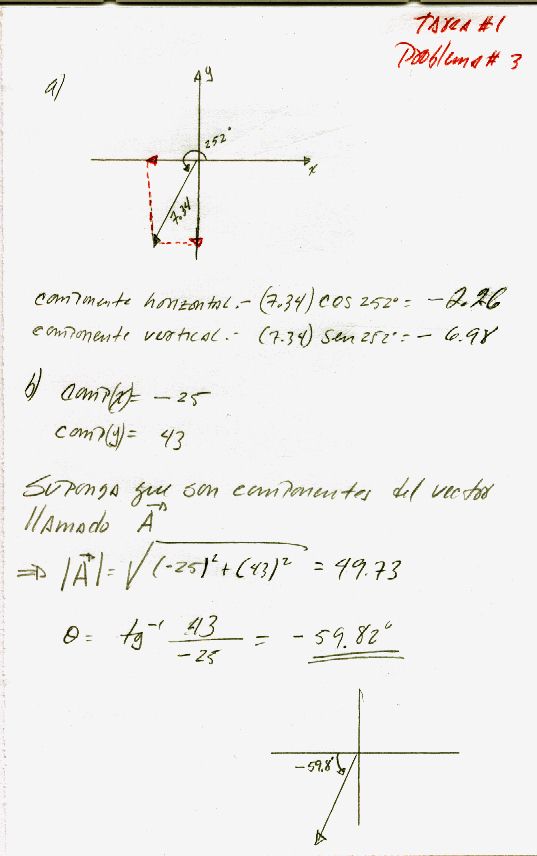 Tarea #1
Problema # 3
a)
y
252°
x
7.34
componente horizontal.- (7.34) cos 252° = -2.26
componente vertical.- (7.34) sen 252° = - 6.98
b) comp(x)= - 25
comp(y)= 43
Suponga que son componentes del vector
llamado A⃗
⇒ |A⃗| = √(-25)² + (43)² = 49.73
θ = tg⁻¹ 43/-25 = - 59.82°
-59.8°